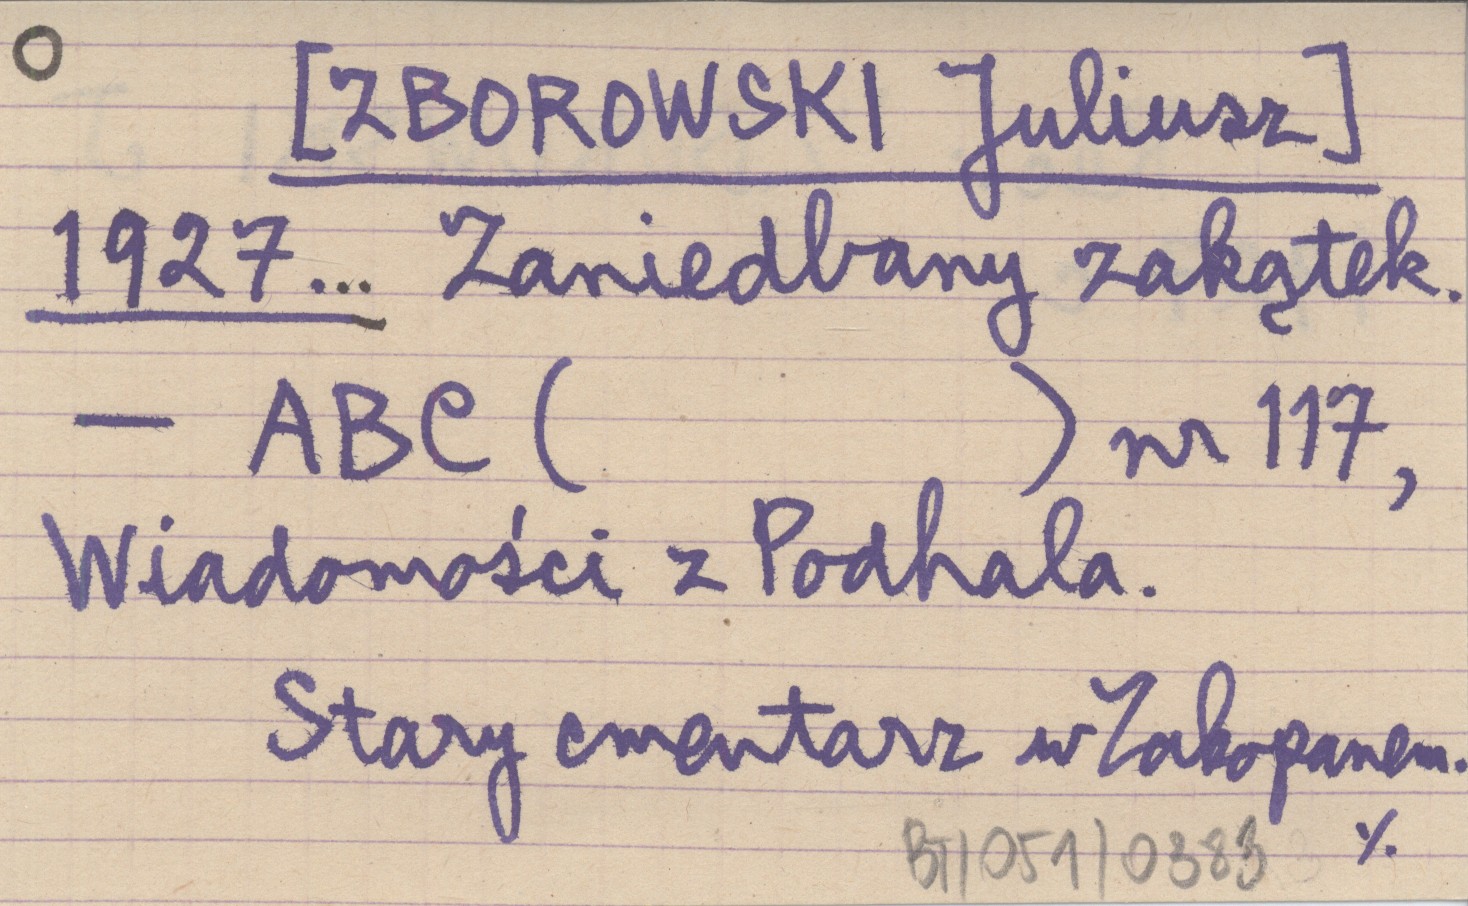 [ZBOROWSKI Juliusz]
1927... Zaniedbany zakątek.
— ABC ( ) nr 117,
Wiadomości z Podhala.
Stary cmentarz w Zakopanem.
%.
BT/051/0383